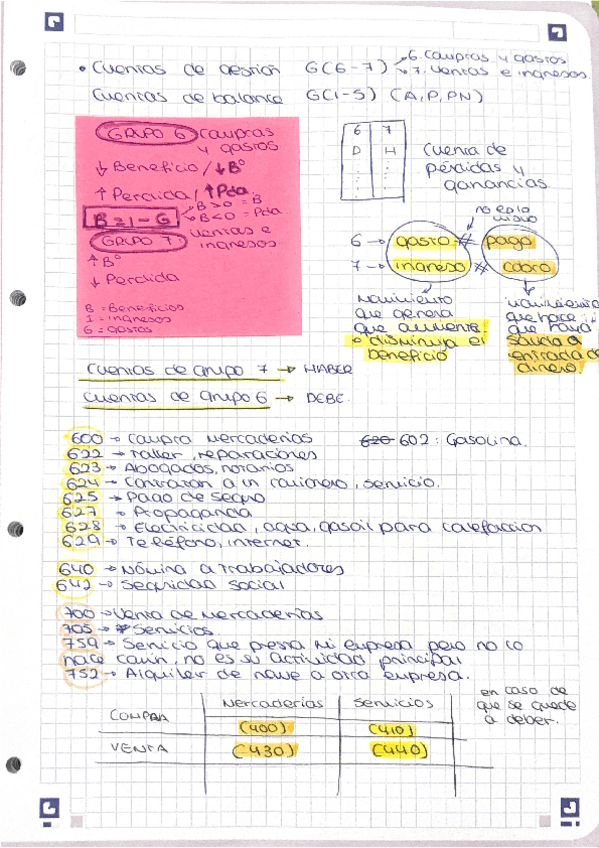 • Cuentas de gestión G(6-7) → 6. Compras y gastos
→ 7. Ventas e ingresos.
Cuentas de balance G(1-5) (A,P,PN)
GRUPO 6 compras
y gastos
↓ Beneficio / ↓ Bº
↑ Perdida / ↑ Pda.
B = I - G
B > 0 = B
B < 0 = Pda
GRUPO 7 ventas e
ingresos
↑ Bº
↓ Perdida
B = Beneficios
I = ingresos
G = gastos
6 7
D H
Cuenta de
pérdidas y
ganancias.
no es lo
mismo
6 → gasto ≠ pago
7 → ingreso ≠ cobro
Movimiento
que genera
que aumente
o disminuya el
beneficio
movimiento
que hace
que haya
salida o
entrada de
dinero.
Cuentas de Grupo 7 → HABER
Cuentas de Grupo 6 → DEBE.
600 → Compra Mercaderias 620 602: Gasolina.
622 → Taller, reparaciones
623 → Abogados, notarios
624 → Contratan a un camionero, servicio.
625 → Pago de seguro
627 → Propaganda
628 → Electricidad, agua, gasoil para calefaccion
629 → Teléfono, internet.
640 → Nómina a trabajadores
642 → Seguridad social
700 → Venta de Mercaderias
705 → Servicios
759 → Servicio que presta mi empresa pero no lo
hace comun, no es su actividad principal
752 → Alquiler de nave a otra empresa.
Mercaderias Servicios
COMPRA (400) (410)
VENTA (430) (440)
en caso de
que se quede
a deber.